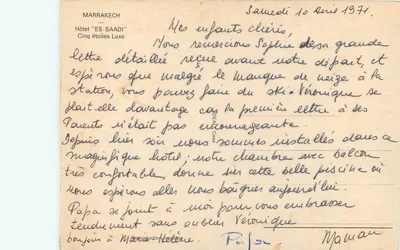 MARRAKECH
Hôtel "ES-SAADI"
Cinq étoiles Luxe
Samedi 10 Avril 1971.
Mes enfants chéris,
Nous remercions Sophie de sa grande
lettre détaillée reçue avant notre départ, et
espérons que malgré le manque de neige à la
station, vous pouvez faire du ski. Véronique se
plaît elle davantage car la première lettre à ses
Parents n'était pas encourageante.
Depuis hier soir nous sommes installés dans ce
magnifique hôtel; notre chambre avec balcon
très confortable, donne sur cette belle piscine où
nous espérons aller nous baigner aujourd'hui.
Papa se joint à moi pour vous embrasser
tendrement sans oublier Véronique
bonjour à Marie-Hélène.
Maman